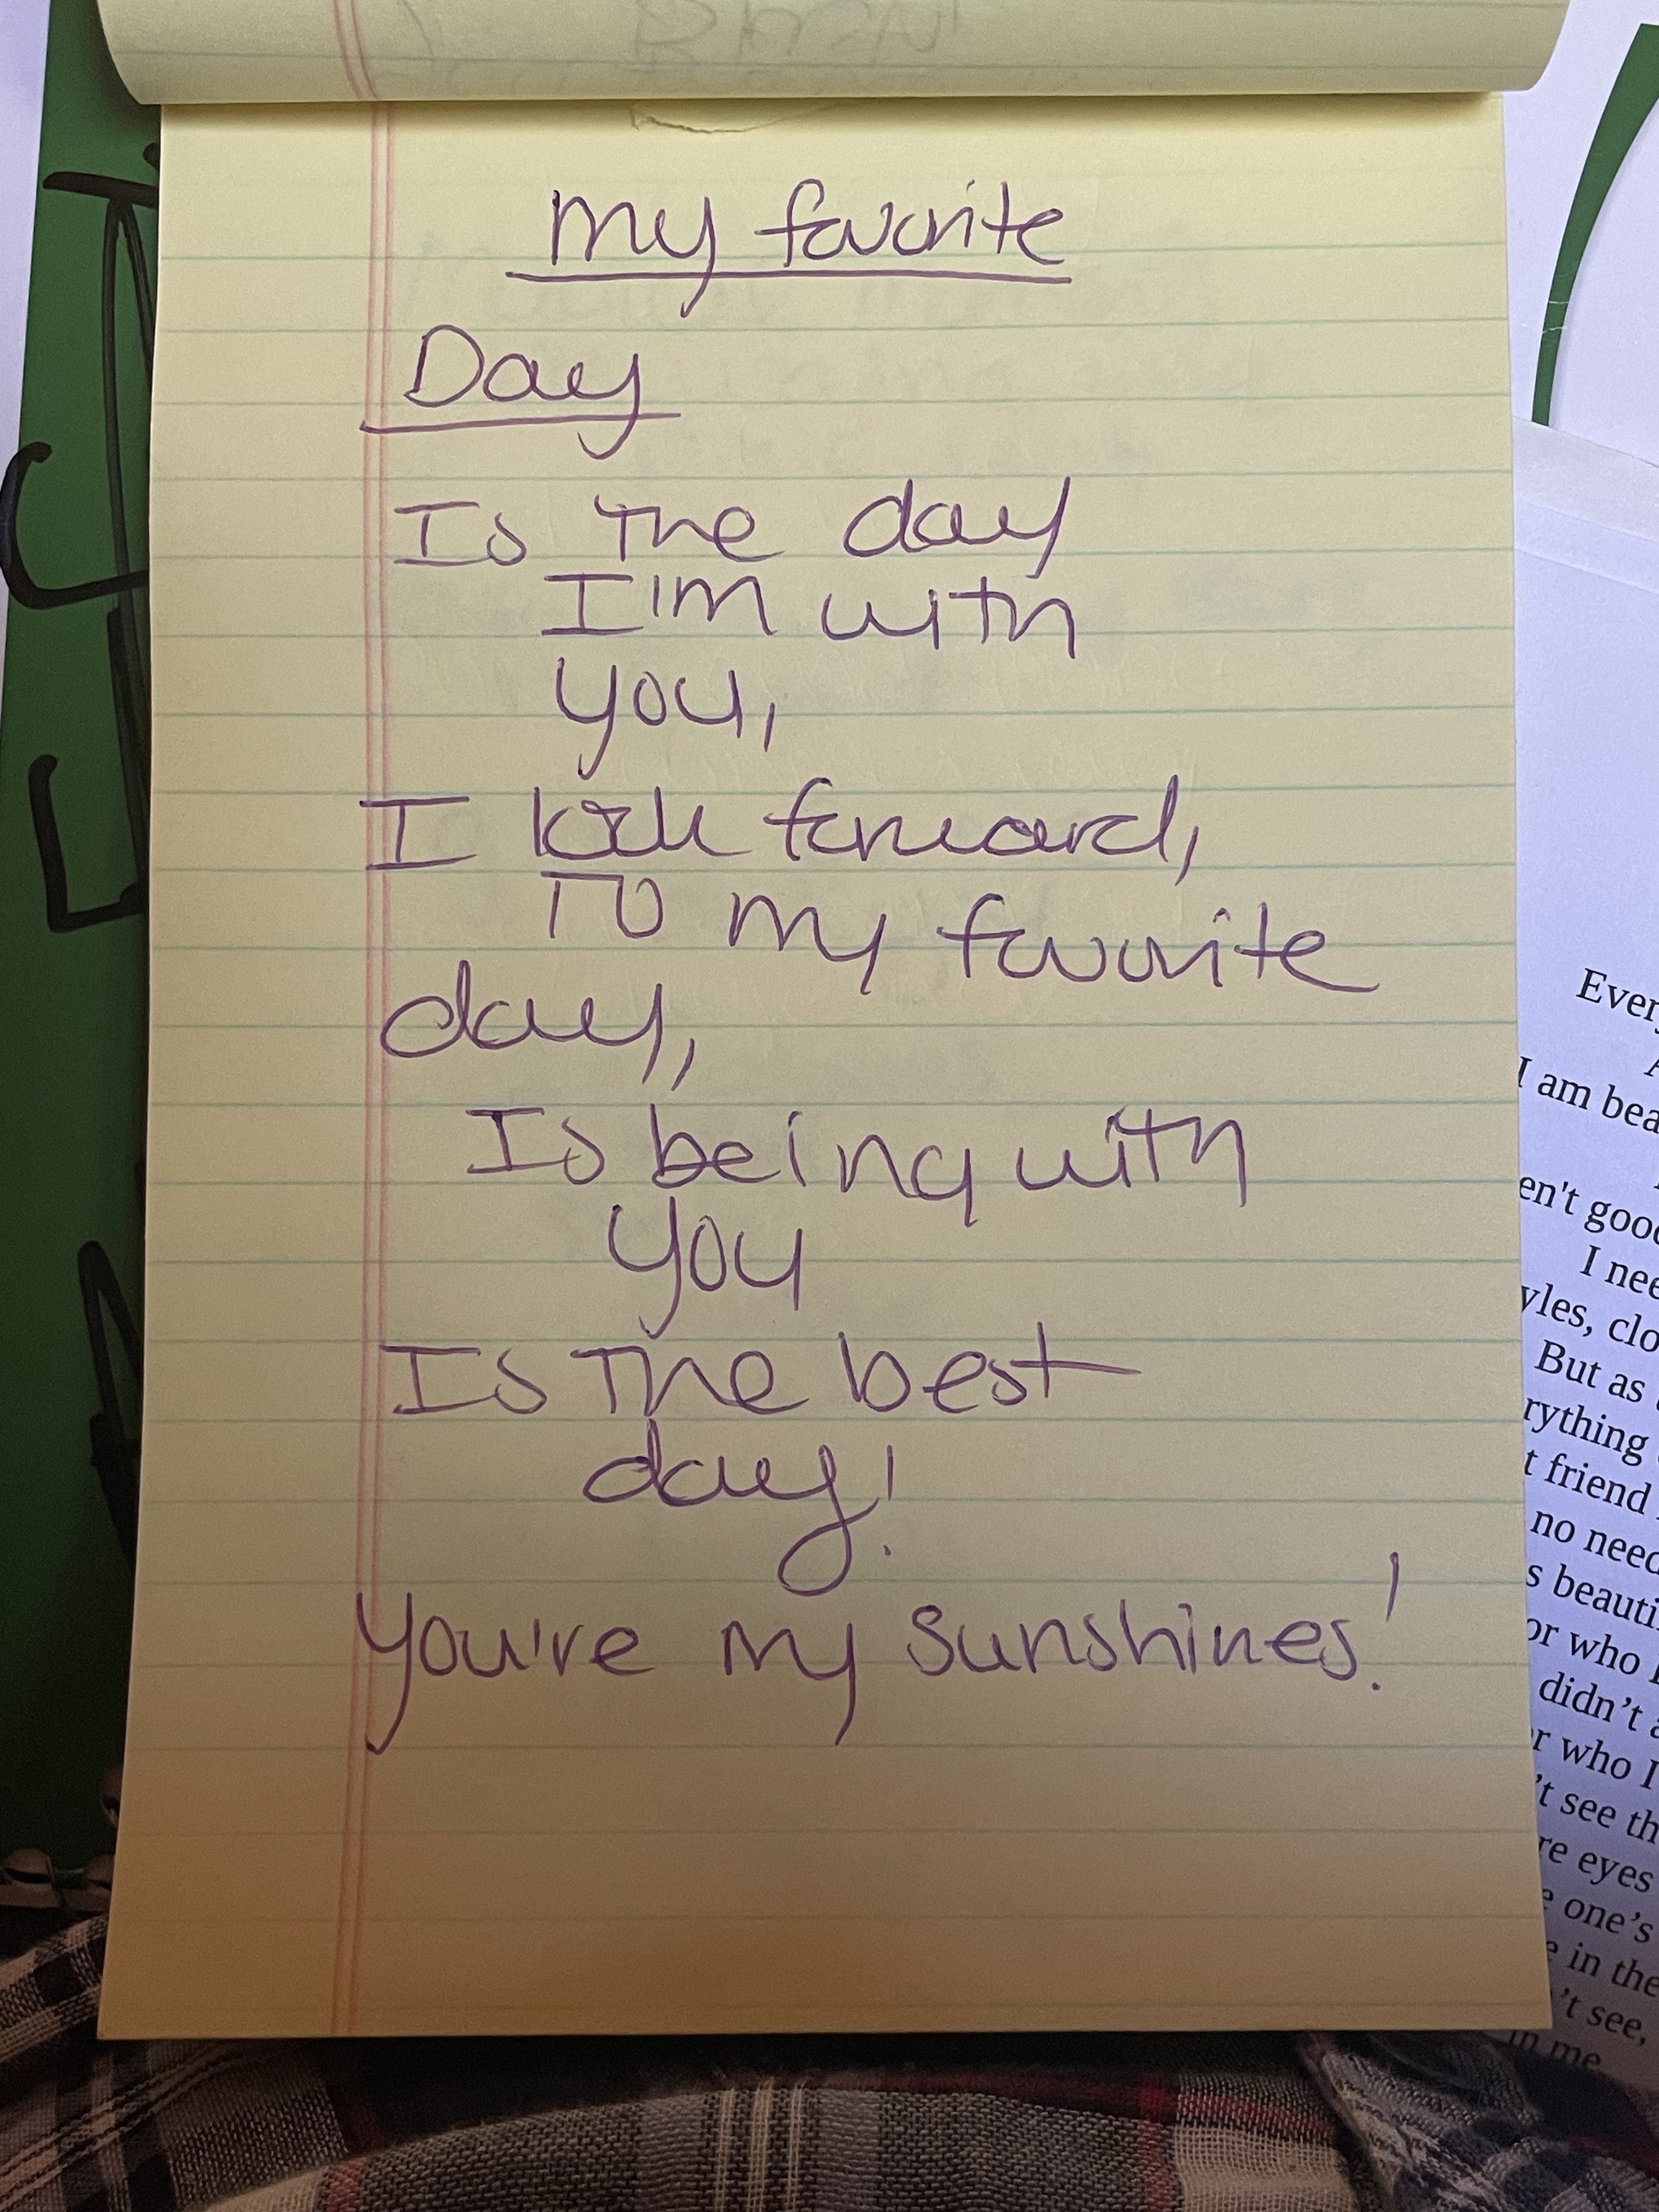 my favorite
Day
Is The day
I'm with
you,
I look forward,
To my favorite
day,
Is being with
you
Is The best
day!
You're my sunshines!
I am
en't
I
But as
friend
no
s
or who
didn't
r who I
't see
re eyes
one's
in the
't see,
in me